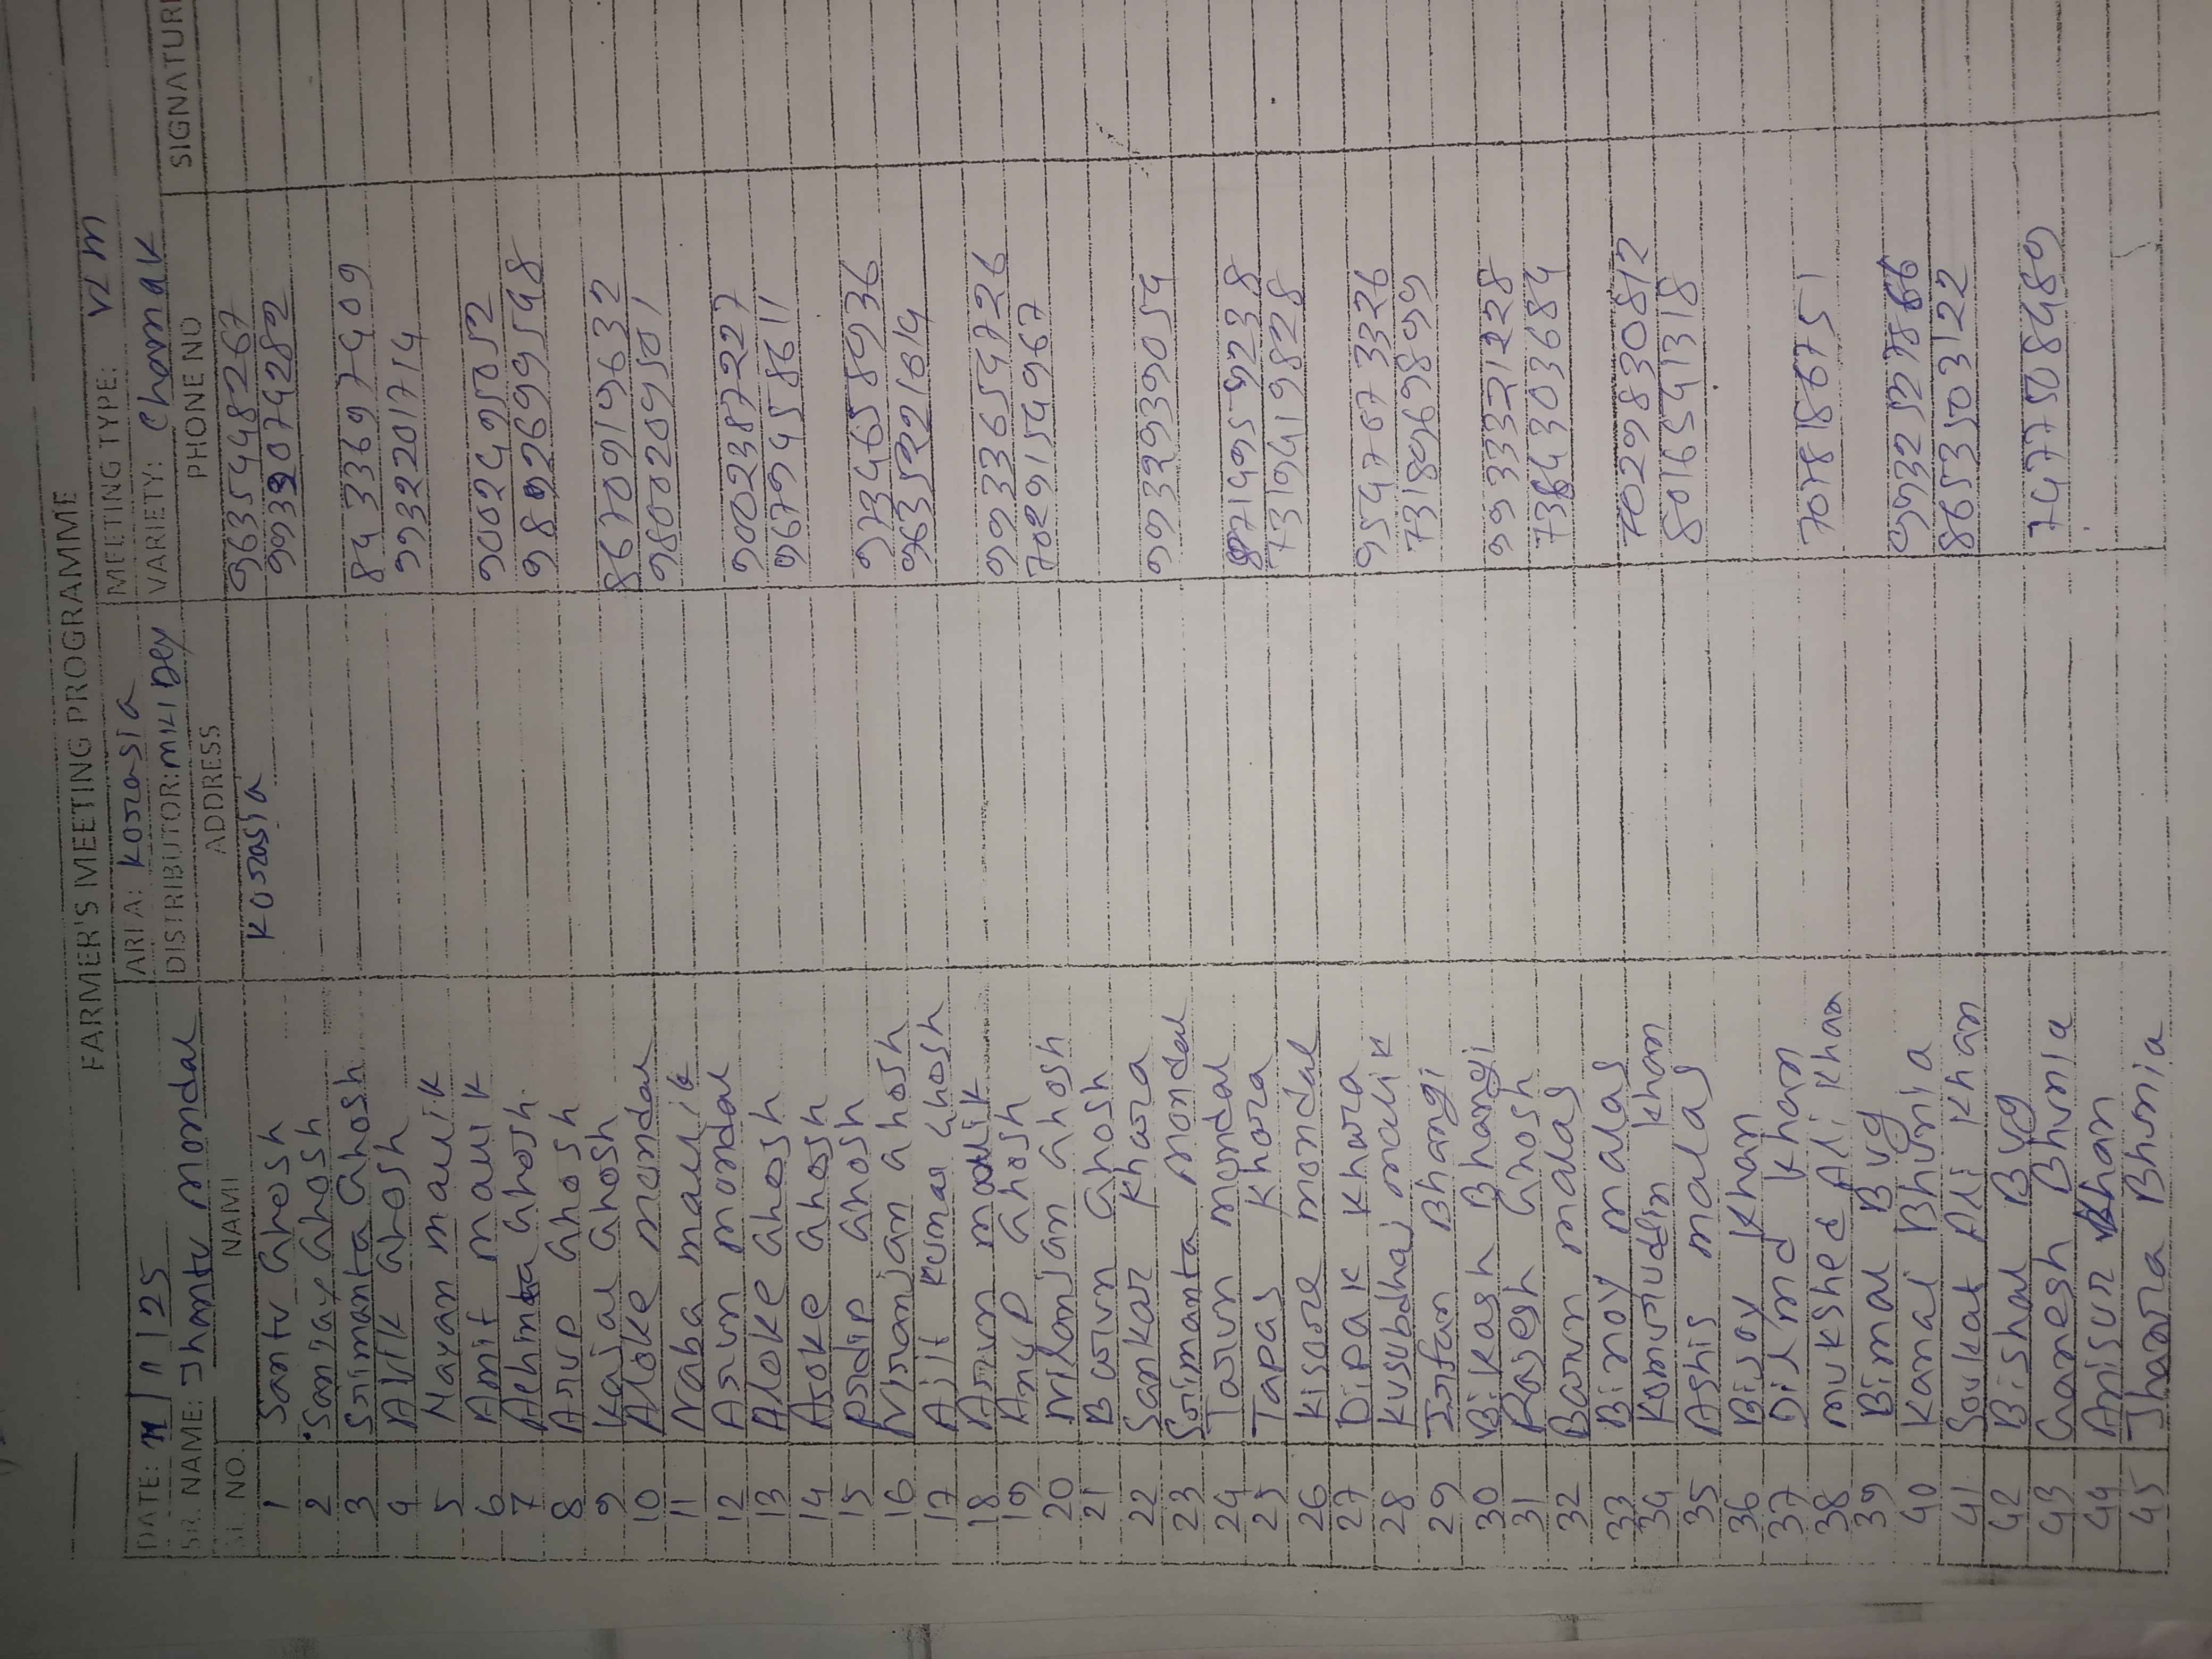 FARMER'S MEETING PROGRAMME
DATE: 11/11/25 AREA: Korasia MEETING TYPE: VLM
SR. NAME: Jhantu Mondal DISTRIBUTOR: Miki Dey VARIETY: Chamak
SL. NO. NAME ADDRESS PHONE NO SIGNATURE
1 Santu Ghosh Korasia 9635448267
2 Sanjay Ghosh 9932074282
3 Srimanta Ghosh
4 Avik Ghosh 8433697409
5 Nayan Malik 9932201714
6 Amit Malik
7 Achinta Ghosh 9002495052
8 Arup Ghosh 9892699548
9 Kajal Ghosh
10 Aloke Mondal 8670919632
11 Naba Malik 9800209501
12 Arun Mondal
13 Aloke Ghosh 9002387227
14 Asoke Ghosh 9679458611
15 Prdip Ghosh
16 Niranjan Ghosh 9734658936
17 Ajit Kumar Ghosh 9635221614
18 Arun Malik
19 Anup Ghosh 9933654726
20 Nilanjan Ghosh 7029154967
21 Barun Ghosh
22 Sankar Khara
23 Srimanta Mondal 9932939054
24 Tarun Mondal
25 Tapas Khara 8714959238
26 Kisore Mondal 7319419828
27 Dipak Khara
28 Kusubdhaj Malik 9547673326
29 Irfan Bhangi 7318969899
30 Bikash Bhangi
31 Rajesh Ghosh 9933321228
32 Barun Malas 7364303684
33 Binoy Malas
34 Kamruddin Khan 7029830812
35 Ashis Malas 8016541318
36 Bijoy Khan
37 Dilmd Khan
38 Mukshed Ali Khan 7078186751
39 Bimal Bug
40 Kamal Bhunia 9932527566
41 Soukat Ali Khan 8653503122
42 Bishal Bug
43 Ganesh Bhunia 7477508489
44 Anisur Khan
45 Jhara Bhunia